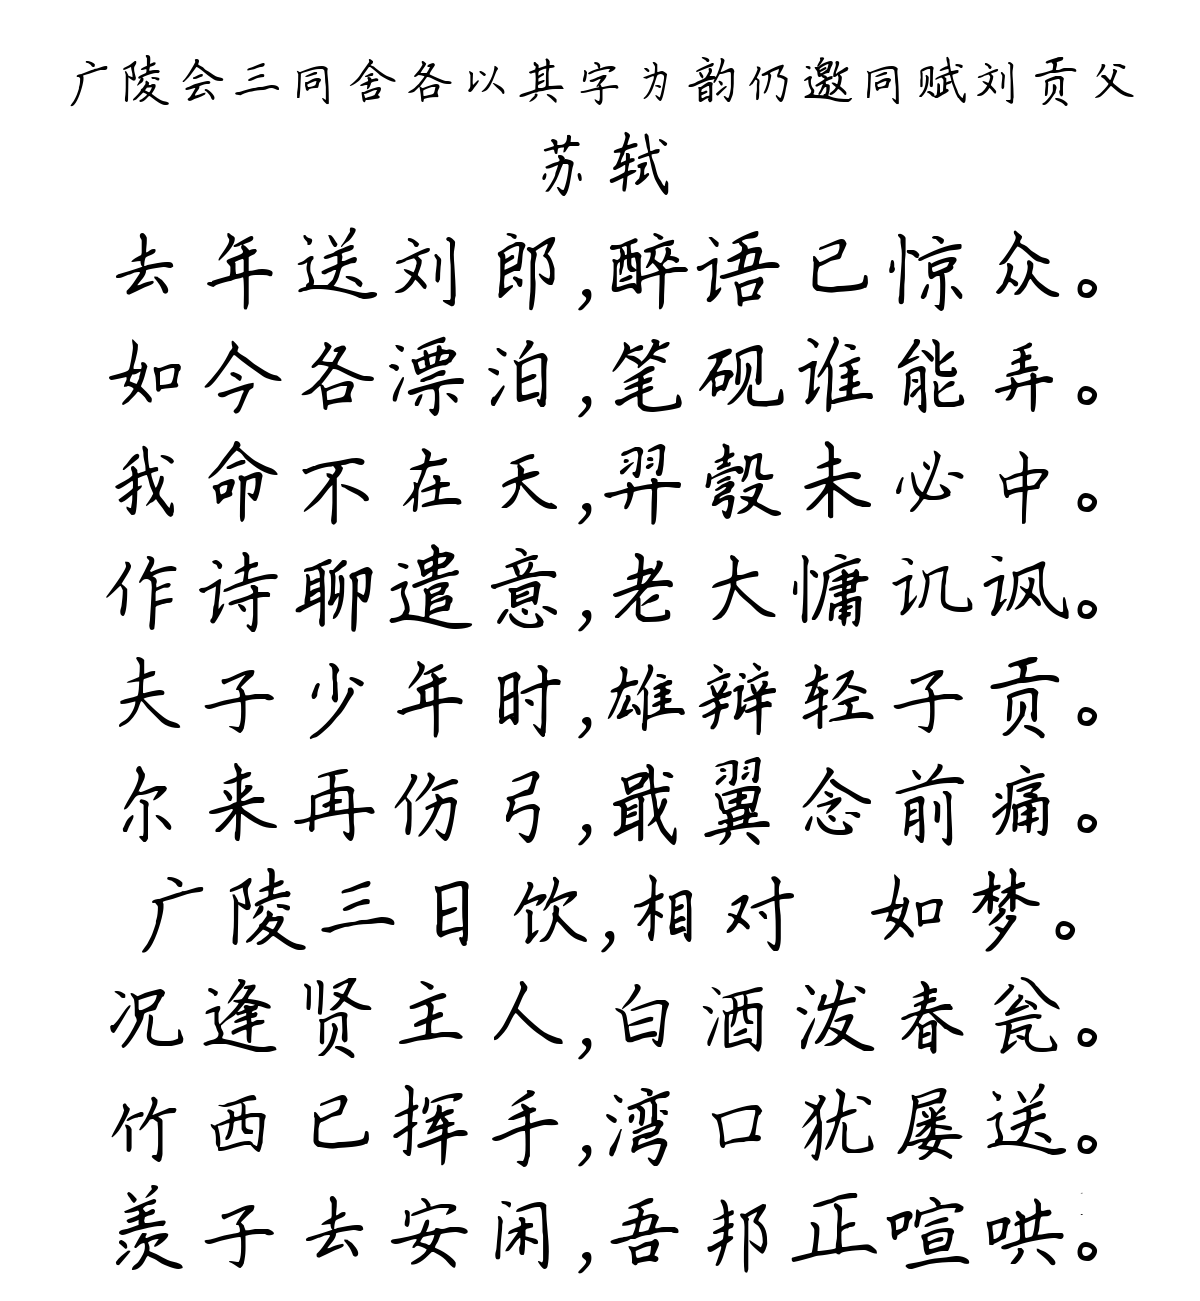 广陵会三同舍各以其字为韵仍邀同赋刘贡父
苏轼
去年送刘郎,醉语已惊众。
如今各漂泊,笔砚谁能弄。
我命不在天,羿彀未必中。
作诗聊遣意,老大慵讥讽。
夫子少年时,雄辩轻子贡。
尔来再伤弓,戢翼念前痛。
广陵三日饮,相对 如梦。
况逢贤主人,白酒泼春瓮。
竹西已挥手,湾口犹屡送。
羡子去安闲,吾邦正喧哄。